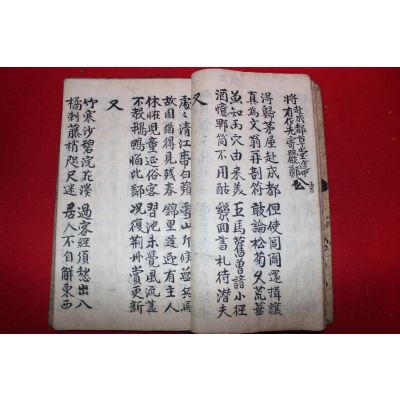 將赴成都草堂途中
有作先寄嚴鄭公
得歸茅屋赴成都 但使閭閻還揖讓
真為文翁再剖符 敢論松菊久荒蕪
魚知丙穴由來美 五馬舊曾諳小徑
酒憶郫筒不用酤 幾回書札待潛夫
又
處々清江帶白蘋 雪山斥候無兵馬
故園猶得見殘春 錦里逢迎有主人
休恠兒童延俗客 習池未覺風流盡
不教鵝鴨惱比鄰 况復荊州賞更新
又
竹寒沙碧浣花溪 過客徑須愁出入
橘刺藤梢咫尺迷 居人不自解東西